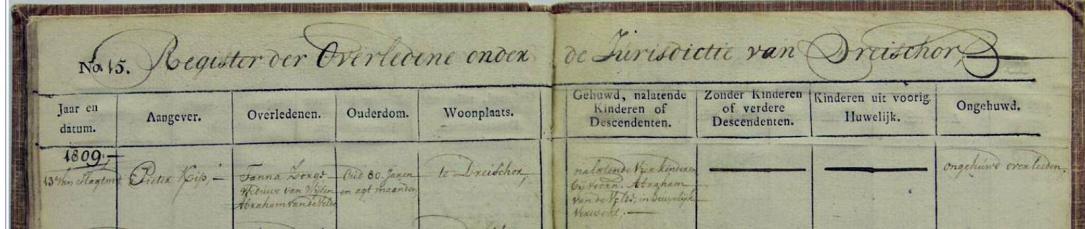 No. 15. Register der Overledene onder de Jurisdictie van Dreischor,
Jaar en datum. Aangever. Overledenen. Ouderdom. Woonplaats. Gehuwd, nalatende Kinderen of Descendenten. Zonder Kinderen of verdere Descendenten. Kinderen uit voorig Huwelijk. Ongehuwd.
1809,
13e van
Pieter Kip,
Janna
Weduwe van Wijlen
Abraham van de Velde
Oud 80. Jaren
en agt maanden
te Dreischor,
nalatende Vijf kinderen
bij voorn. Abraham
van de Velde, in huwelijk
Verwekt.
ongehuwd overleden,